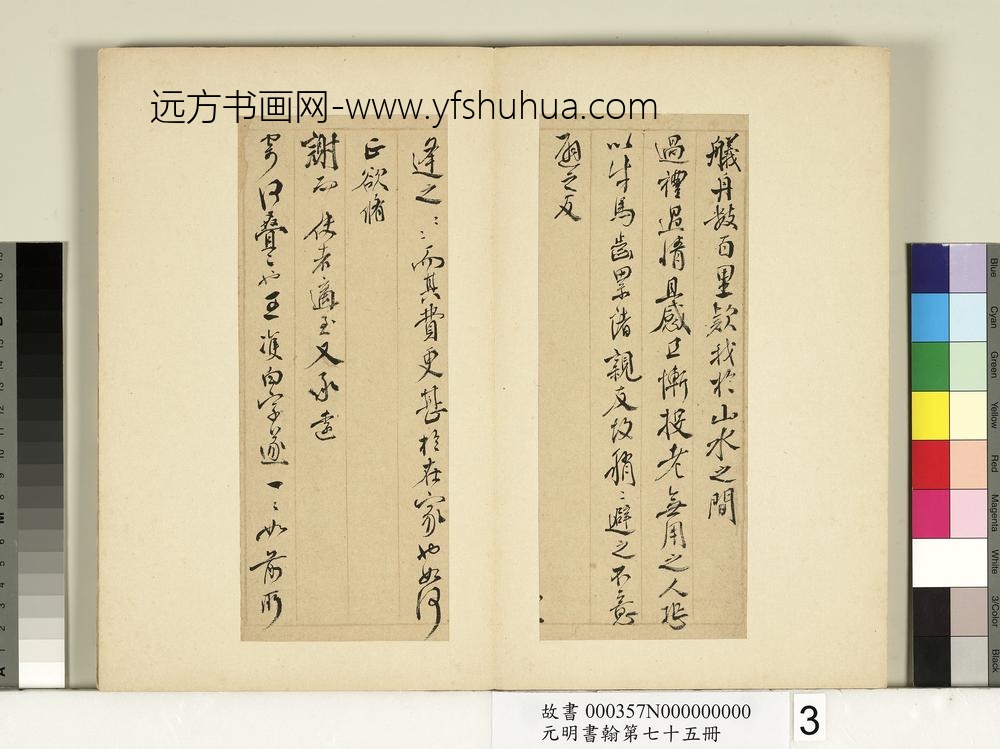 远方书画网-www.yfshuhua.com
艤舟数百里歎我於山水之間
過禮過情且感且慚投老無用之人
以牛馬齒累諸親友故稍〻避之不意
避之反
逢之〻〻而其費更甚於在家也如何
正欲脩
謝而使者適至又承遠
寄何疊〻也王履白字遂一〻如前所
故書 000357N000000000
元明書翰第七十五冊
3
Blue
Cyan
Green
Yellow
Red
Magenta
White
3/Color
Black